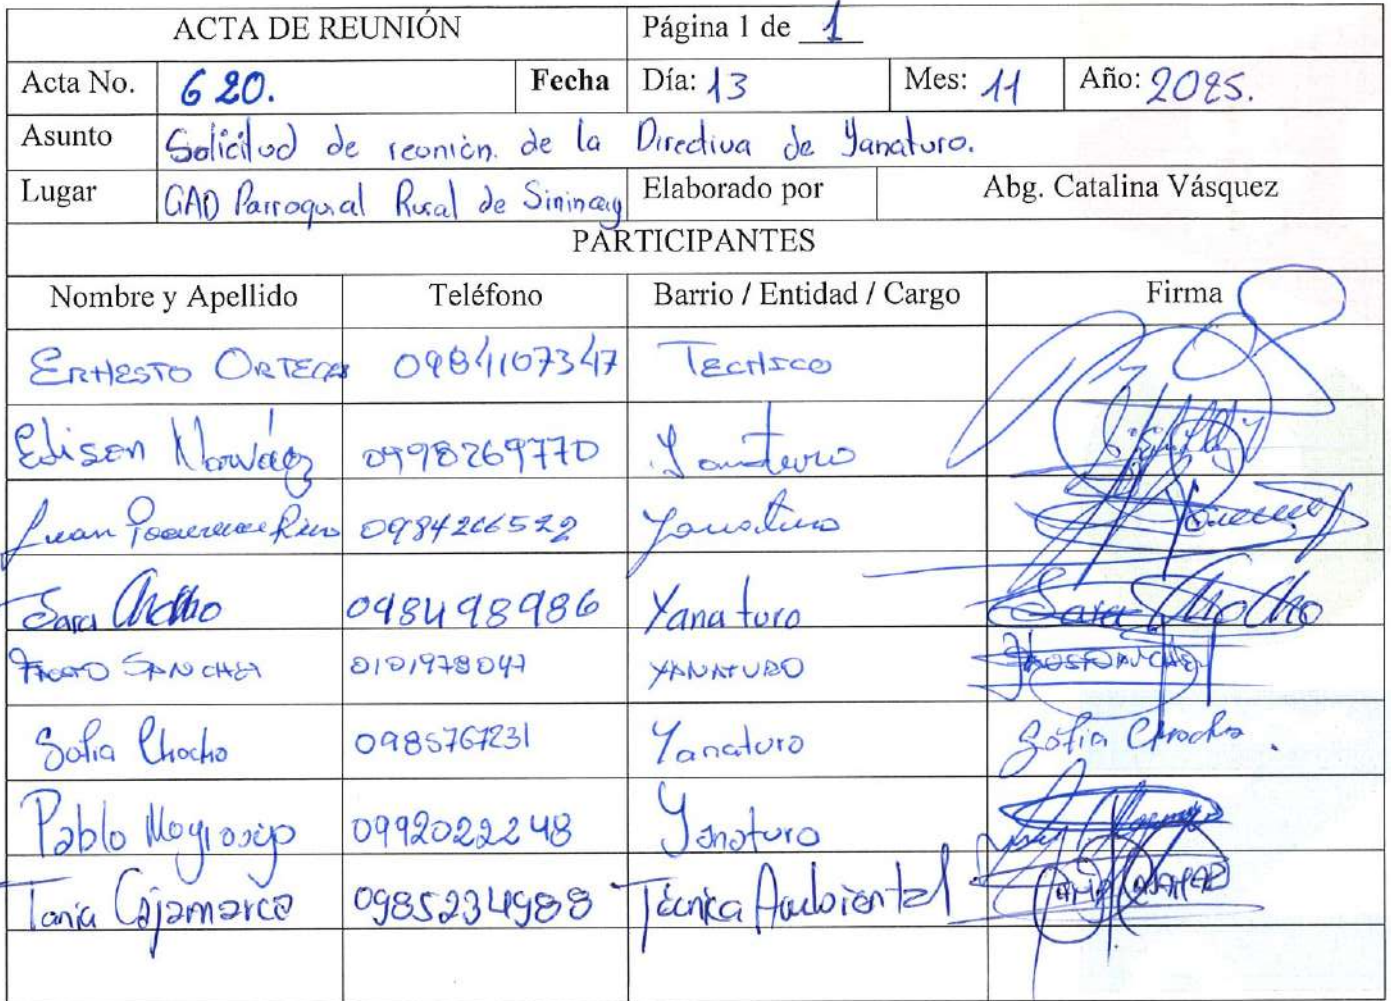 ACTA DE REUNIÓN Página 1 de 1
Acta No. 620. Fecha Día: 13 Mes: 11 Año: 2025.
Asunto Solicitud de reunión. de la Directiva de Yanaturo.
Lugar GAD Parroquial Rural de Sinincay Elaborado por Abg. Catalina Vásquez
PARTICIPANTES
Nombre y Apellido Teléfono Barrio / Entidad / Cargo Firma
ERNESTO ORTEGA 0984107347 TECNICO
Edison Narváez 0998269770 Yanaturo
Juan 0984266522 Yanaturo
Sara Chocho 098498986 Yanaturo Sara Chocho
FAUSTO SANCHEZ 0101978047 YANATURO
Sofia Chocho 0985767231 Yanaturo Sofia Chocho.
Pablo Mogrovejo 0992022248 Yanaturo
Tania Cajamarca 0985234988 Técnica Ambiental